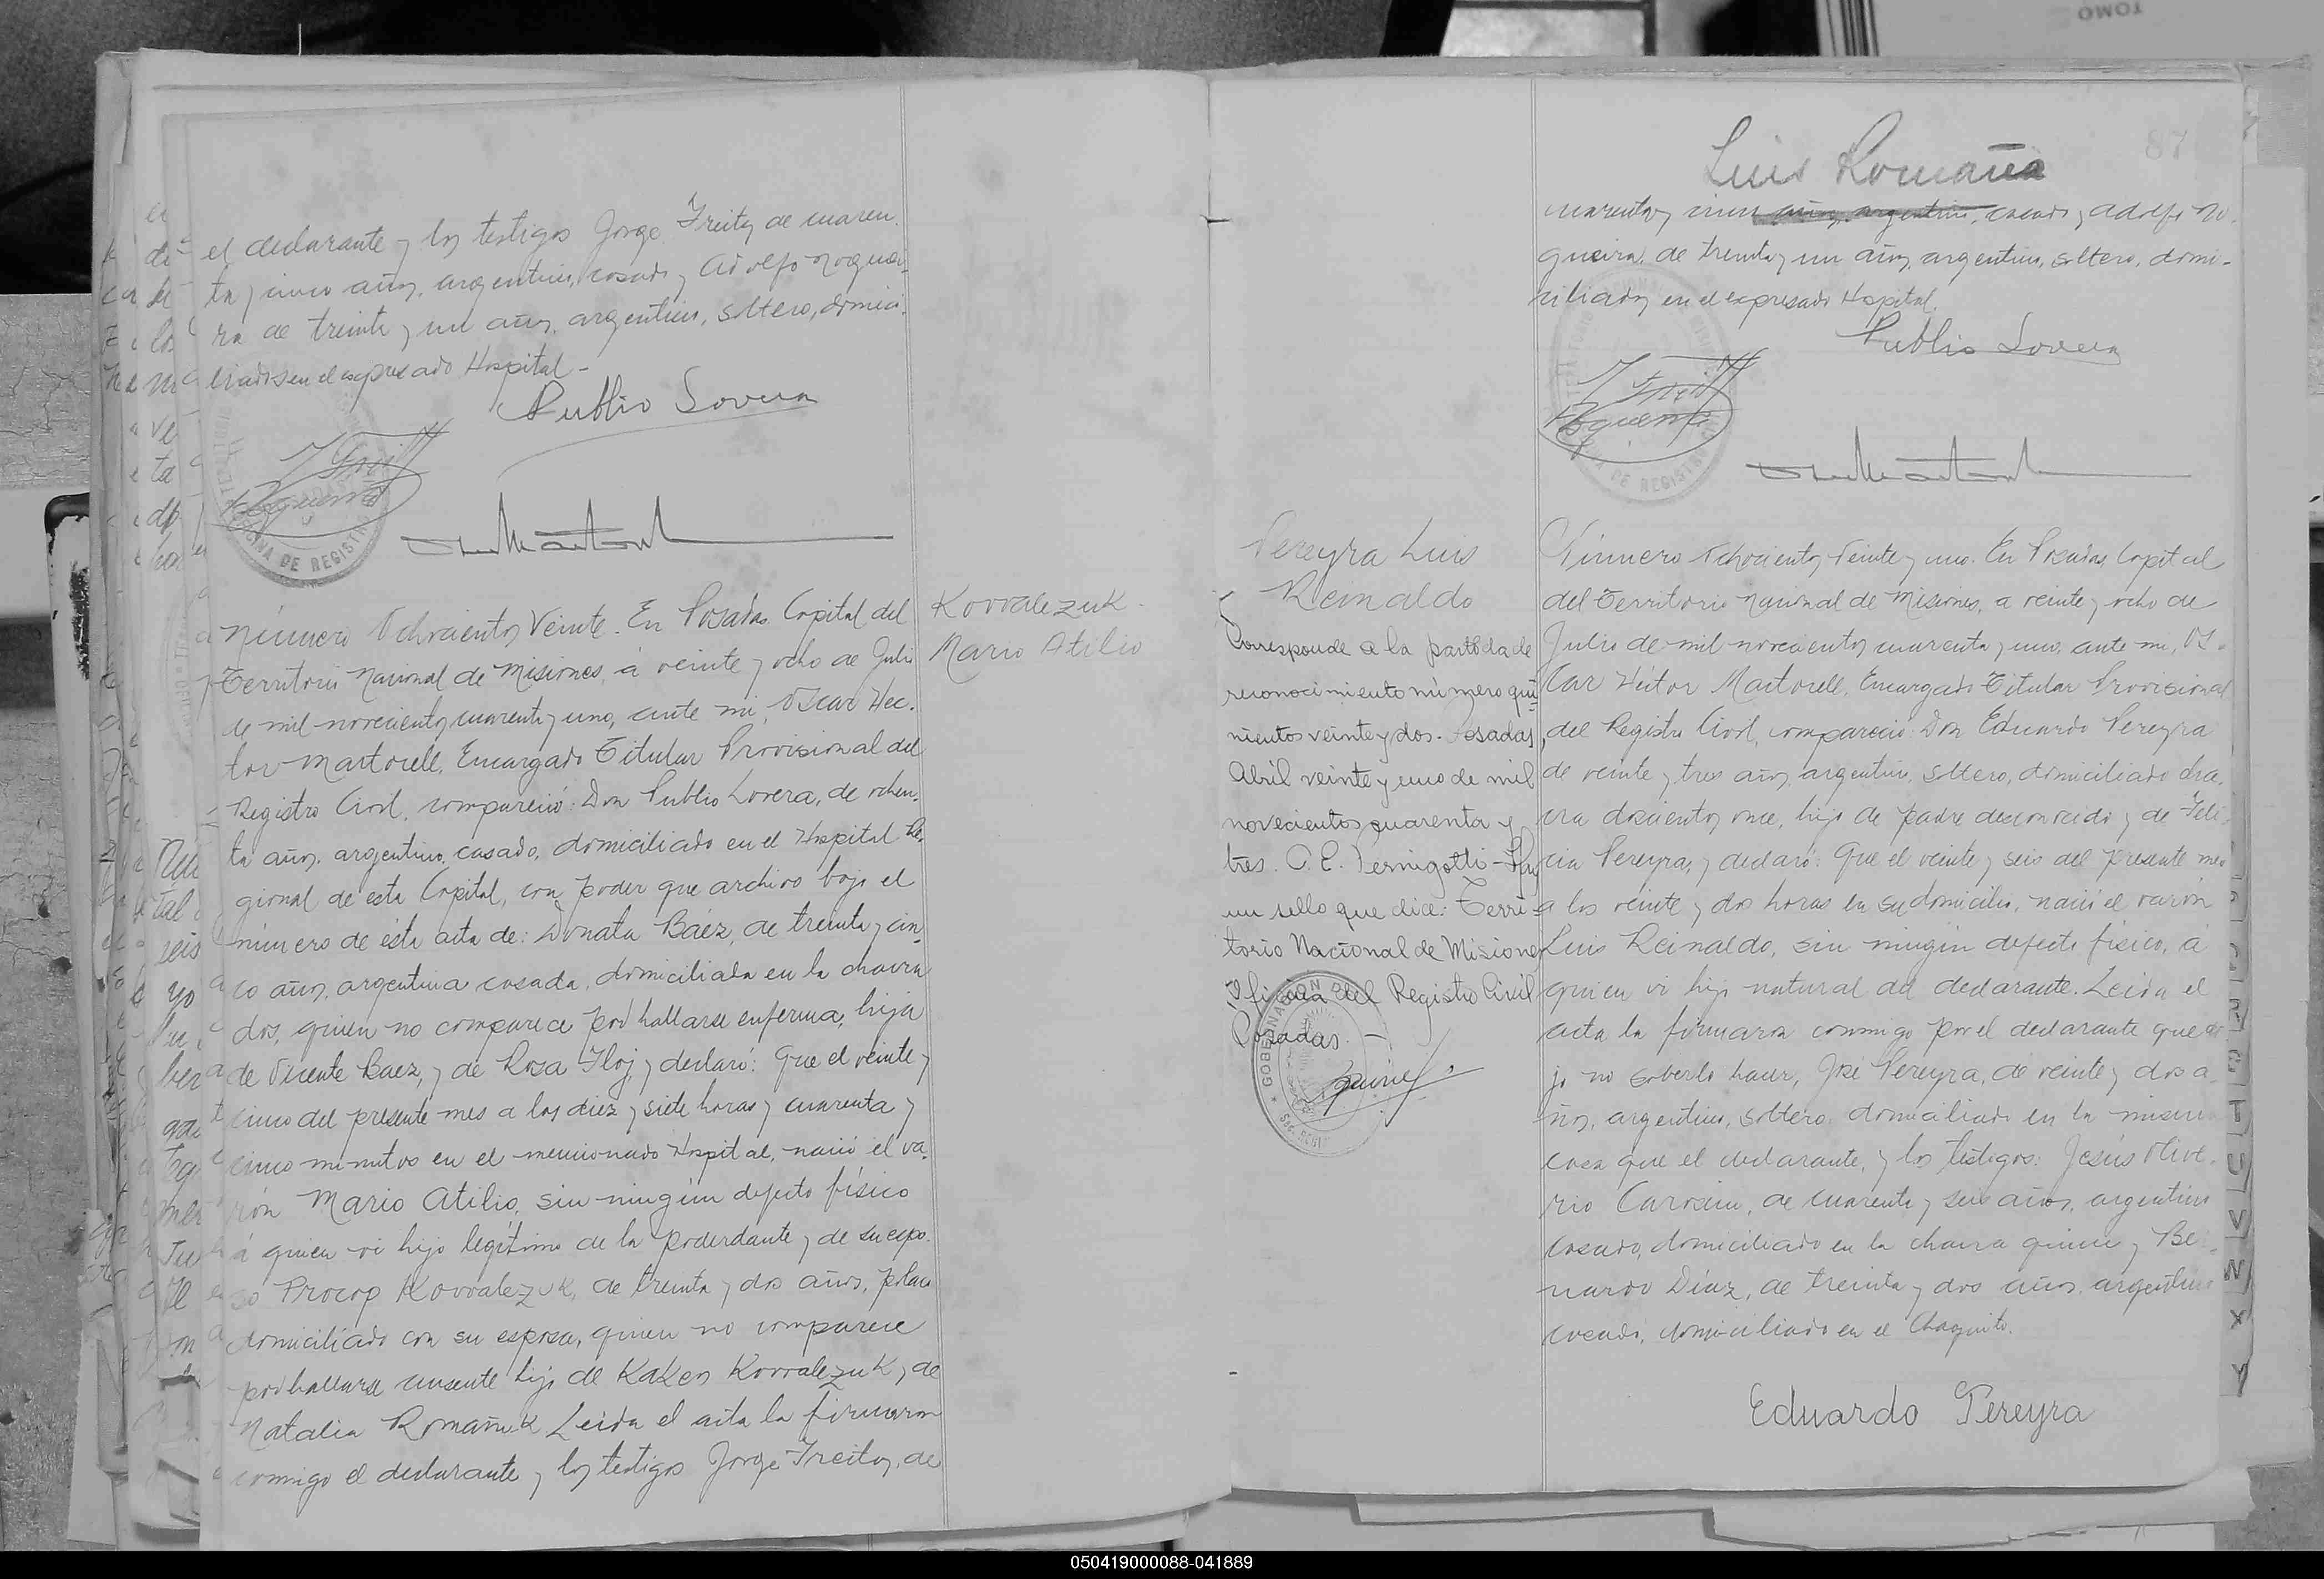 TOMO
el declarante y los testigos Jorge Freitas de cuaren
ta y cinco años, argentino, casado y Adolfo Noguei-
ra de treinta y un años, argentino, soltero, domici-
liados en el expresado Hospital -
Publio Lovera
OFICINA DE REGISTR
Número Ochocientos Veinte. En Posadas Capital del
Territorio Nacional de Misiones, á veinte y ocho de Julio
de mil novecientos cuarenta y uno, ante mi, Oscar Hec-
tor Martorell, Encargado Titular Provisional del
Registro Civil, compareció: Don Publio Lovera, de ochen-
ta años, argentino, casado, domiciliado en el Hospital Re-
gional de esta Capital, con poder que archivo bajo el
número de ésta acta de: Donata Báez, de treinta y cin-
co años, argentina casada, domiciliada en la chacra
dos, quien no comparece por hallarse enferma, hija
de Vicente Baez, y de Rosa Floj, y declaró: Que el veinte y
cinco del presente mes a las diez y siete horas y cuarenta y
cinco minutos en el mencionado Hospital, nació el va-
rón Mario Atilio, sin ningún defecto físico
á quien vi hijo legítimo de la poderdante y de su espo-
so Procop Kovvalezuk, de treinta y dos años, polaco
domiciliado con su esposa, quien no comparece
por hallarse ausente hijo de Kaken Kovvalezuk y de
Natalia Romañuk Leida el acta la firmaron
conmigo el declarante y los testigos Jorge Freitas, de
Kovvalezuk
Mario Atilio
87
Luis Romaña
cuarenta y cinco años, argentino, casado y Adolfo No-
gueira, de treinta y un años, argentino, soltero, domi-
ciliados en el expresado Hospital.
Publio Lovera
DE REGISTR
Pereyra Luis
Reinaldo
Corresponde a la partida de
reconocimiento número qui-
nientos veinte y dos. Posadas,
Abril veinte y uno de mil
novecientos cuarenta y
tres. O. E. Pernigotti - Hay
un sello que dice: Terri-
torio Nacional de Misiones
Oficina del Registro Civil
Posadas. -
GOBERNACION DE
Número Ochocientos Veinte y uno. En Posadas Capital
del Territorio Nacional de Misiones, a veinte y ocho de
Julio de mil novecientos cuarenta y uno, ante mi, Os-
car Héctor Martorell, Encargado Titular Provisional
del Registro Civil, compareció: Don Eduardo Pereyra
de veinte y tres años, argentino, soltero, domiciliado cha-
cra doscientos once, hijo de padre desconocido y de Feli-
cia Pereyra, y declaró: Que el veinte y seis del presente mes
a las veinte y dos horas en su domicilio, nació el varón
Luis Reinaldo, sin ningún defecto físico, á
quien vi hijo natural del declarante. Leida el
acta la firmaron conmigo por el declarante que di-
jo no saberlo hacer, José Pereyra, de veinte y dos a-
ños, argentino, soltero, domiciliado en la misma
casa que el declarante, y los testigos: Jesús Olive-
rio de cuarenta y seis años, argentino
casado, domiciliado en la chacra quince y Be-
nardo Díaz, de treinta y dos años, argentino
casado, domiciliado en el Chaquito.
Eduardo Pereyra
T
U
V
W
X
Y
050419000088-041889